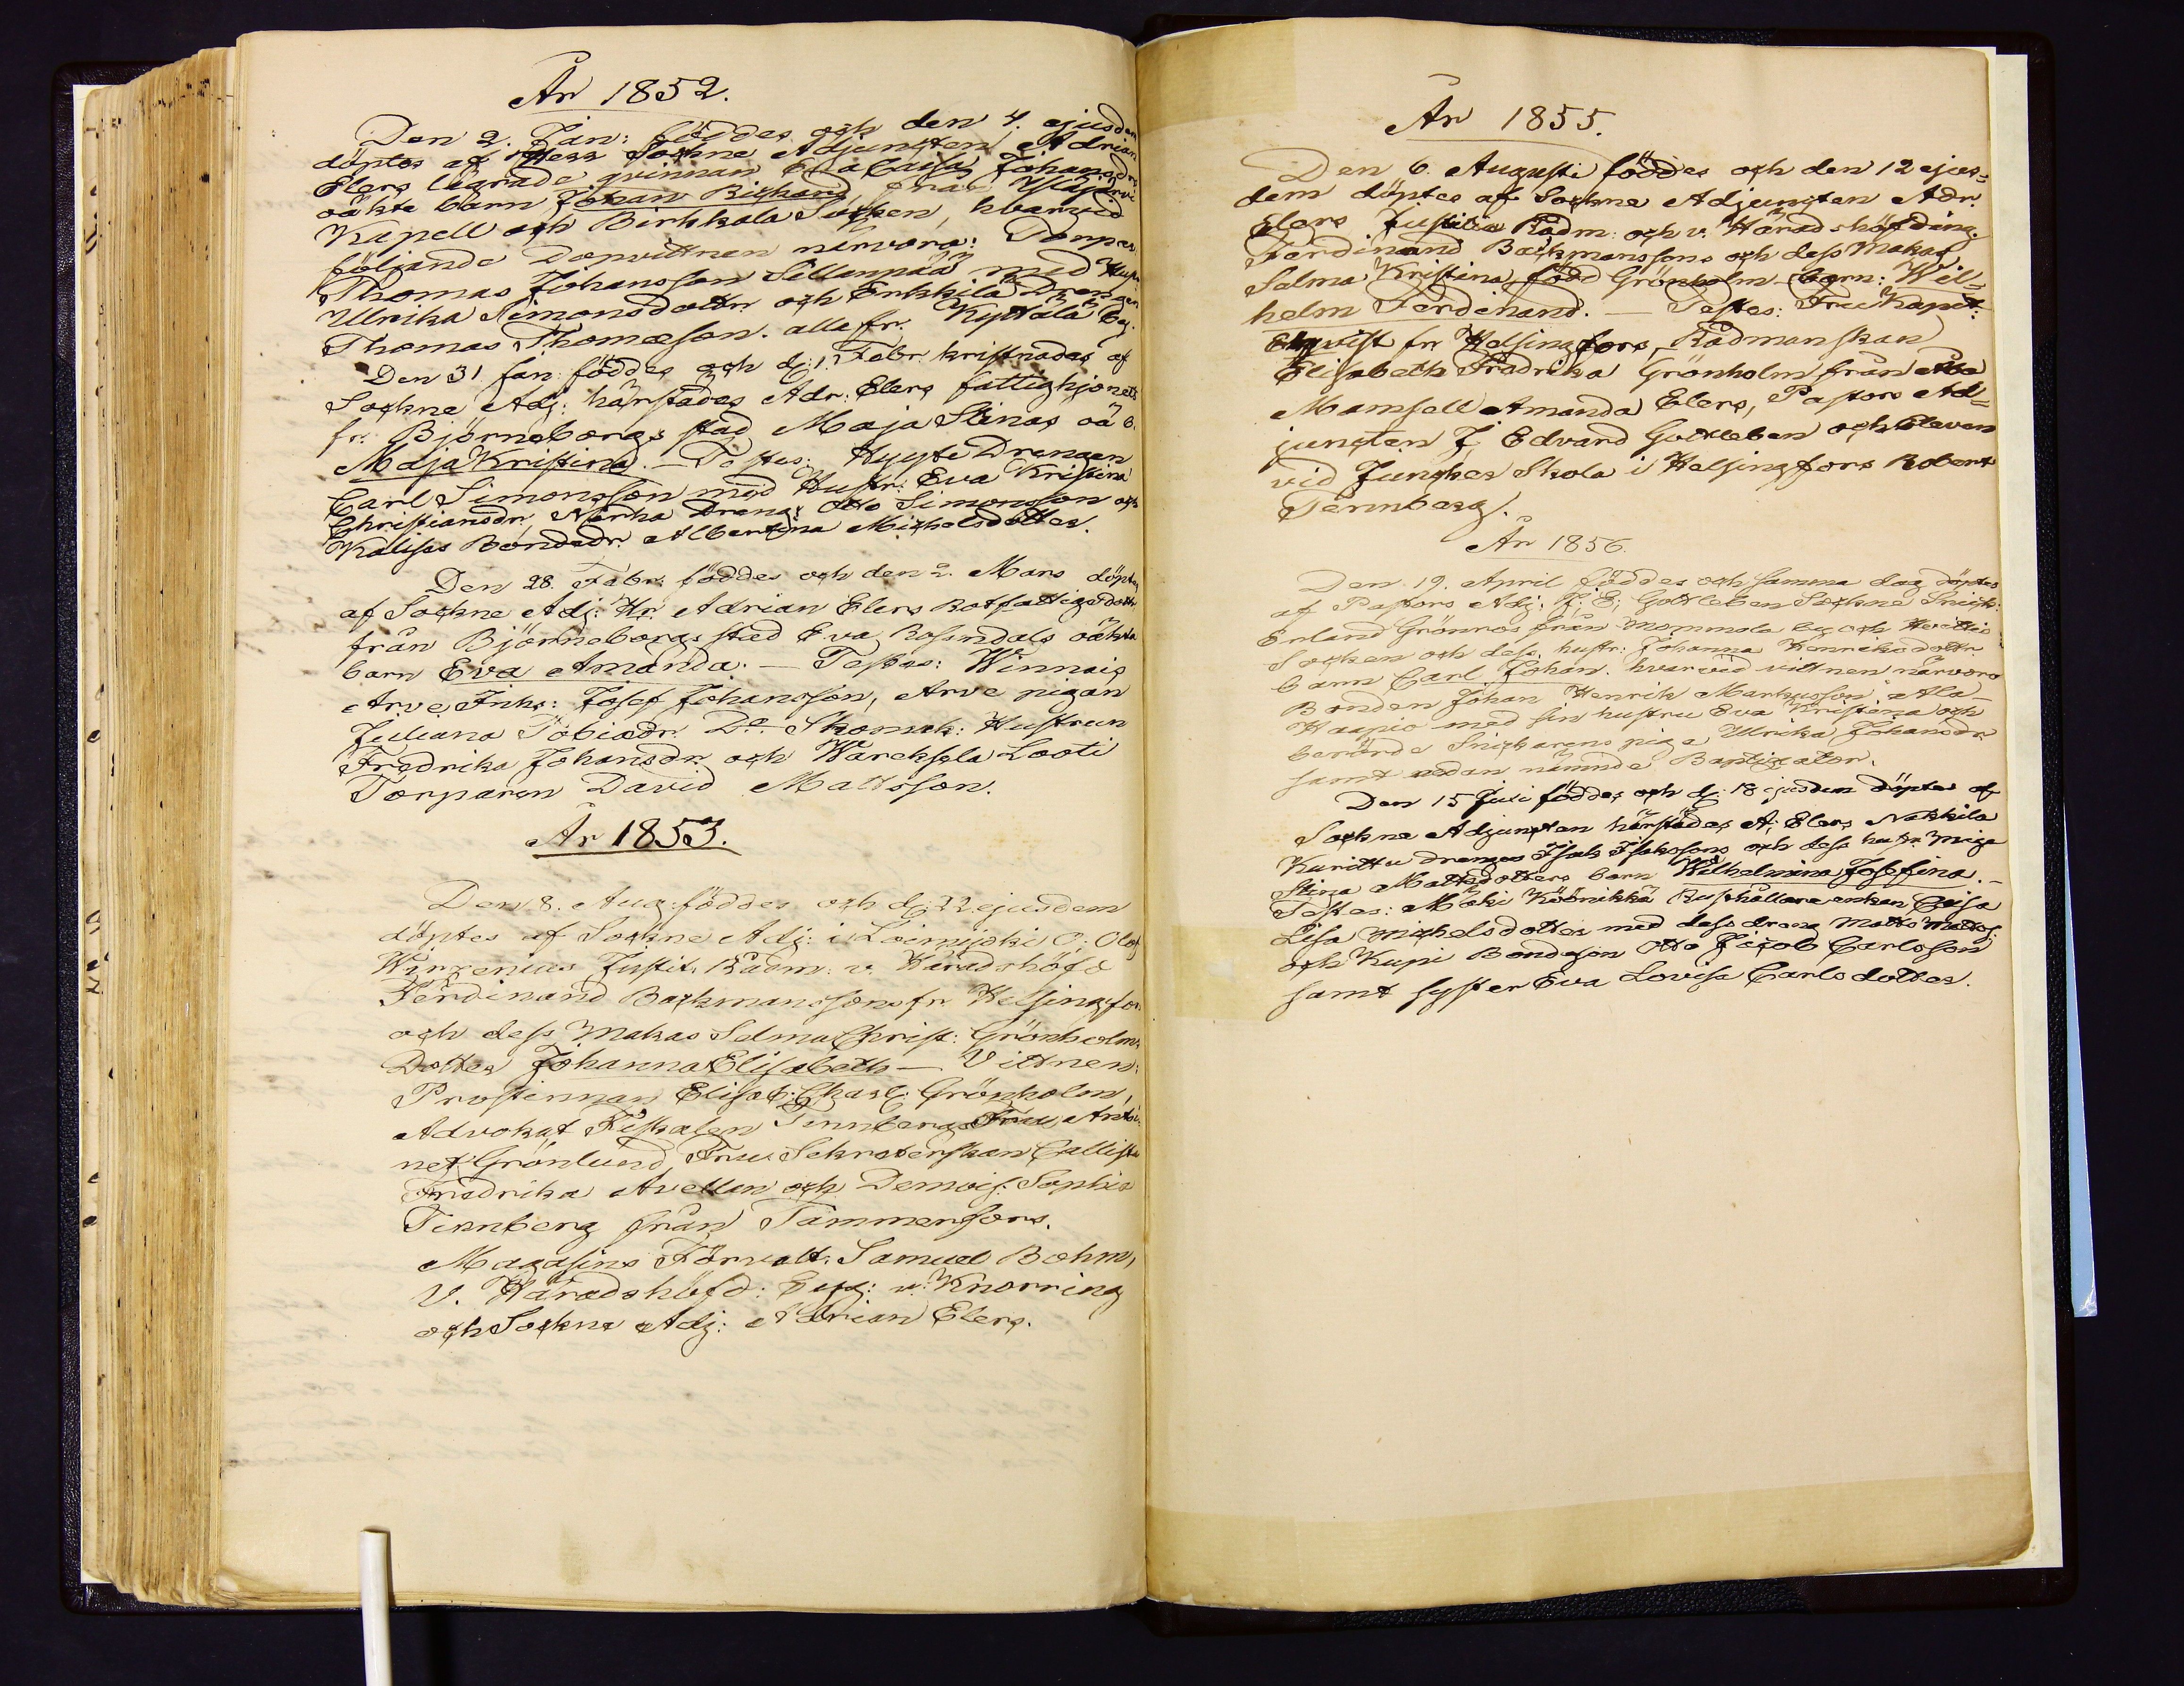 År 1852.
Den 2. Jan: föddes och den 4. ejusdem
döptes af Sockne Adjunkten Adrian
Elers lägrade qvinnan Johansdr.
oäkta barn Johan Richard från Ylöjärvi
Kapell och Birkkala Socken, hvarvid
följande Dopvittnen närvoro: Torpar.
Thomas Johansson Sillanpää med Hustr.
Ulrika Simonsdotter och Erkkilä Drengen
Thomas Thomasson. alla fr. Kyttälä by.
Den 31 Jan föddes och d: 1. Febr. kristnades af
Sockne Adj: härstädes Adr: Elers fattighjonets
fr: Björneborgs stad Maja Stinas oä b.
Maja Kristina. — Testes: Hyyte Drengen
Carl Simonsson med Hustr: Eva Kristina
Christiansdr, Drengs Otto Simonsson och
Kalises Bondedr. Albertina Michelsdotter.
Den 28. Febr. föddes och den 2. Mars döptes
af Sockne Adj: Hr. Adrian Elers
från Björneborgs stad Eva Rosendals oäkta
barn Eva Amanda. — Testes: Winnais
Arve Inhs: Josef Johansson, Arve pigan
Juliana Tobiadr. Do. Skomak: Hustrun
Fredrika Johansdr. och Looti
Torparen David Mattsson.
År 1853.
Den 8. Aug: föddes och d: 22 ejusdem
döptes af Sockne Adj: i Loimijoki O: Olof
Justit. Rådm: v. Häradshöfd
Ferdinand Backmanssons fr. Helsingfors
och dess Makas Selma Christ: Grönholms
Dotter Johanna Elisabeth — Vittnen:
Prostinnan Elisab: Charl: Grönholm,
Advokat Fiskalen Tennberg Fru
Grönlund, Fru Sekreterskan Callista
Fredrika Avellan och Demois. Sophie
Tennberg från Tammerfors.
Magasins Förvalt. Samuel Bohm,
V. Häradshöfd: Eug: v: Knorring
och Sockne Adj: Adrian Elers.
År 1855.
Den 6. Augusti föddes och den 12 ejus=
dem döptes af Sockne Adjunkten Adr.
Elers Justitiæ Rådm: och v. Häradshöfding.
Ferdinand Backmanssons och dess Makas
Selma Kristina, född Grönholm barn: Wil=
helm Ferdinand. — Testes: Fru Kapit:
fr Helsingfors, Rådmanskan
Elisabeth Fredrika Grönholm från
Mamsell Amanda Elers, Pastors Ad=
juncten J. Edvard Gottleben och Eleven
vid Junckes Skola i Helsingfors Robert
Tennberg.
År 1856.
Den 19. April föddes och samma dag döptes
af Pastors Adj: J: E: Gottleben Sockne Snick:
Erland Grönroos från Mommola by och
Socken och dess hustr: Johanna Henriksdotr.
barn Carl Johan. hvarvid vittnen närvoro
Bonden Johan Henrik Markusson Ala
Haapio med sin hustru Eva Kristina och
berörde Snickarens piga Ulrika Johansdr.
samt redan nämnde Baptizator.
Den 15 Juli föddes och d: 18 ejusdem döptes af
Sockne Adjunkten härstädes A: Elers Nakkila
Kurittu drenges Isak Isakssons och dess hustr Maja
Stina Mattsdotters barn Wilhelmina Josefina. —
Testes: Mäki Köönikkä Rusthållare enkan Caisa
Lisa Michelsdotter med dess dreng Matts Mattss:
och Kupi Bondeson Otto Jacob Carlsson
samt syster Eva Lovisa Carlsdotter.